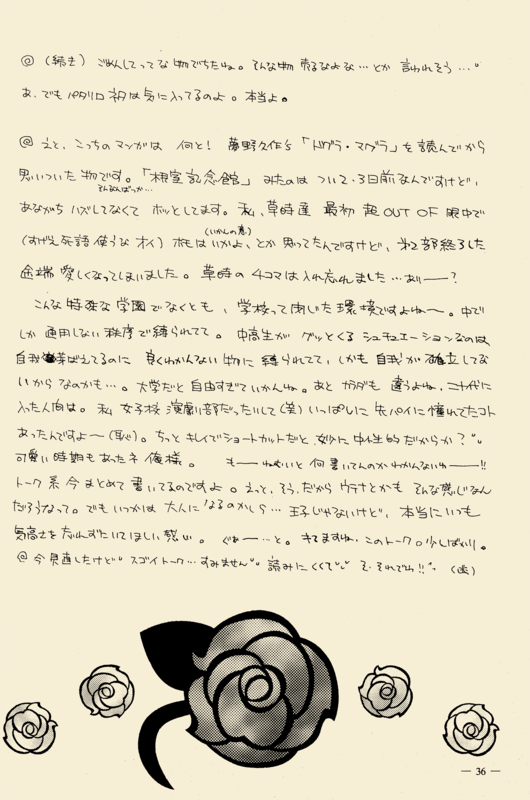 @ (続き) ごめんしてってな物でちたね。そんな物 売るなよな…とか 言われそう…。
あ、でも パタリロネタは気に入ってるのよ。本当よ。
@ えと、こっちのマンガは 何と! 夢野久作の「ドグラ・マグラ」を読んでから
思いついた 物です。「根室記念館」 みたのは ついて、3日前なんですけど、
そんなんばっか…
あながち ハズしてなくて ホッとしてます。私、草時達 最初 超 OUT OF 眼中で
(いかんの意)
(すげえ死語使うな オイ) ホモは いかよ、とか 思ってたんですけど、第2部終了した
途端 愛しくなってしまいました。草時の 4コマは入れ忘れました…あり——?
こんな 特殊な 学園でなくとも、学校って 閉じた 環境ですよね〜。中で
しか 通用しない 秩序で縛られてて。中高生が グッとくる シュチュエーションなのは、
自我芽ばえてるのに 良くわかんない物に 縛られてて、しかも 自我が 確立してな
いから なのかも…。大学だと 自由すぎていかんね。あと カラダも 違うよね、二十代に
入った人間は。私 女子校 演劇部だったいして(笑) いっぱしに 先パイに憧れてたコト
あったんですよ〜(恥)。ちっと キレイでショートカットだと 妙に中性的だからか?
可愛い 時期もあったネ 俺様。 も— ねむいと 何書いてんのか わかんないね——!!
トーク系 今まとめて 書いてるのですよ。えっと、そう、だから ウテナとかも そんな感じなん
だろうなって。でも いつかは 大人になるのかしら…王子じゃないけど、本当に いつも
気高さを 忘れずにいてほしい 感じ。 ぐぉ——…と。キてますね、このトーク。少しばかり。
@ 今見直したけど スゴイトーク…すみません 読みにくくて そ、それでわ!! (終)
— 36 —